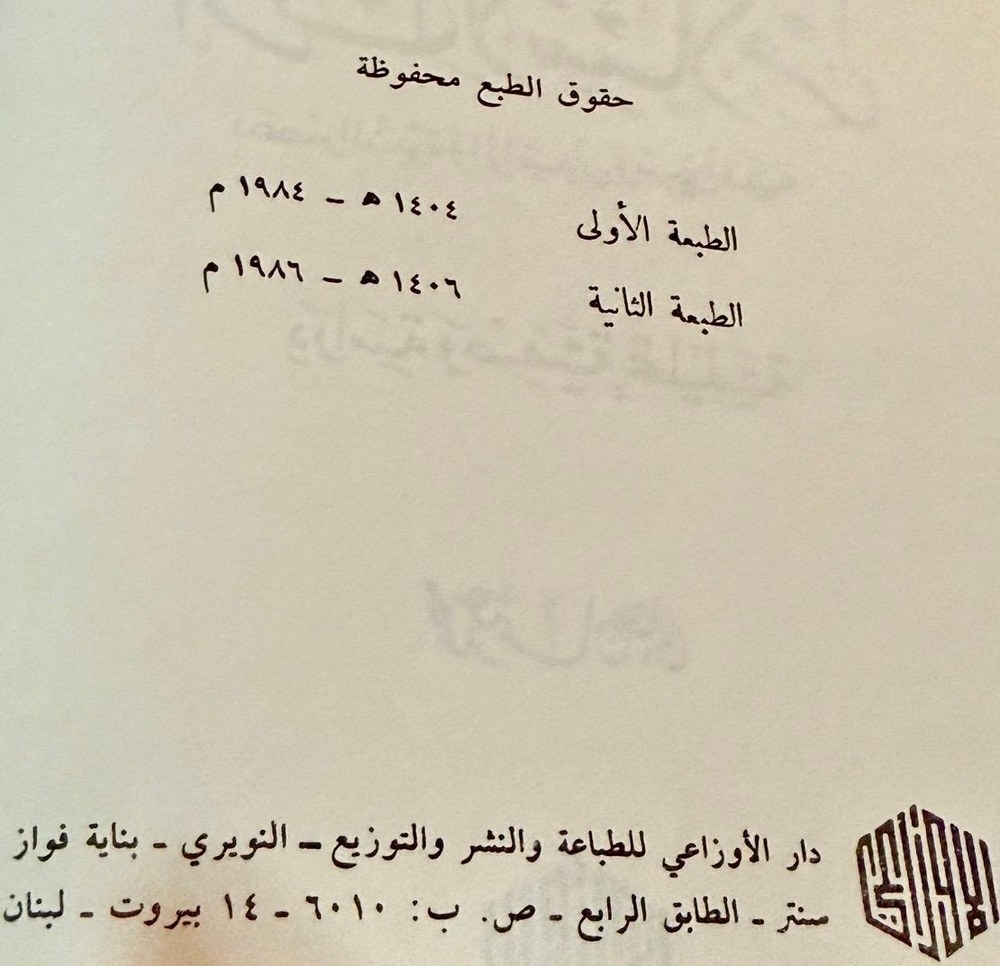 حقوق الطبع محفوظة
الطبعة الأولى ١٤٠٤ هـ ــ ١٩٨٤ م
الطبعة الثانية ١٤٠٦ هـ ــ ١٩٨٦ م
دار الأوزاعي للطباعة والنشر والتوزيع ــ النويري ـ بناية فواز
سنتر ـ الطابق الرابع ـ ص. ب: ٦٠١٠ ـ ١٤ بيروت ـ لبنان